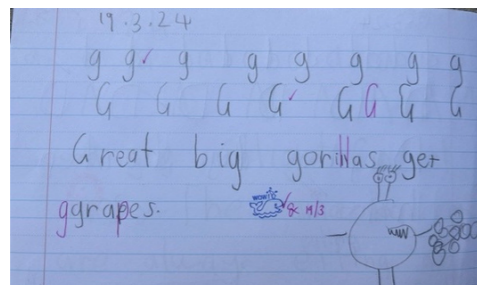 19.3.24
g g g g g g g g
G G G G G G G G
Great big gorillas get
ggrapes.
WOW!
19/3